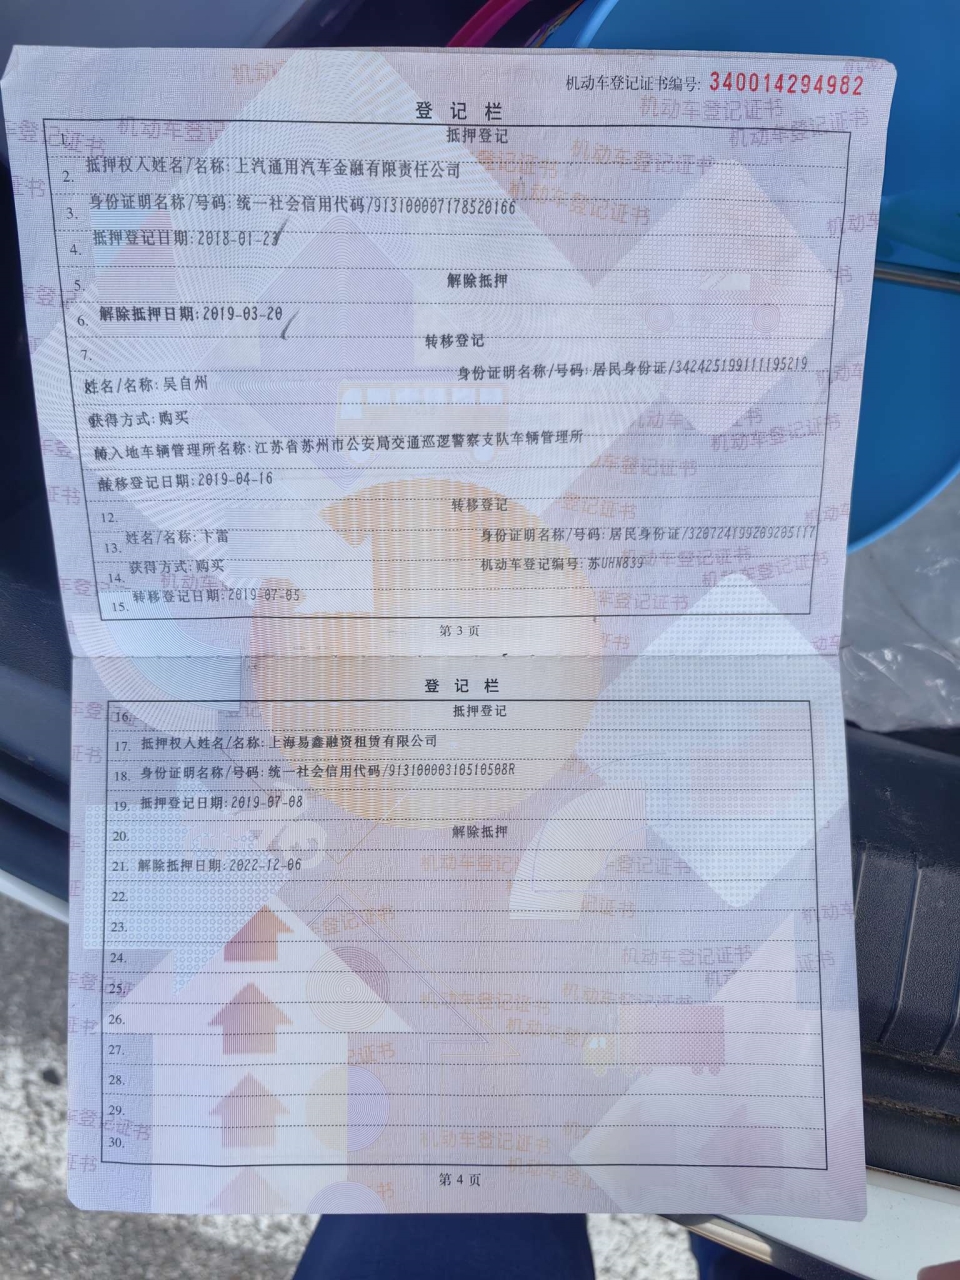 机动车登记证书编号: 340014294982
登 记 栏
1. 抵押登记
2. 抵押权人姓名/名称: 上汽通用汽车金融有限责任公司
3. 身份证明名称/号码: 统一社会信用代码/913100007178520166
4. 抵押登记日期: 2018-01-23
5. 解除抵押
6. 解除抵押日期: 2019-03-20
7. 转移登记
姓名/名称: 吴自州 身份证明名称/号码: 居民身份证/342425199111195219
获得方式: 购买
转入地车辆管理所名称: 江苏省苏州市公安局交通巡逻警察支队车辆管理所
转移登记日期: 2019-04-16
12. 转移登记
13. 姓名/名称: 卞雷 身份证明名称/号码: 居民身份证/320724199209205117
14. 获得方式: 购买 机动车登记编号: 苏UHN839
15. 转移登记日期: 2019-07-05
第 3 页
登 记 栏
16. 抵押登记
17. 抵押权人姓名/名称: 上海易鑫融资租赁有限公司
18. 身份证明名称/号码: 统一社会信用代码/91310000310510508R
19. 抵押登记日期: 2019-07-08
20. 解除抵押
21. 解除抵押日期: 2022-12-06
22.
23.
24.
25.
26.
27.
28.
29.
30.
第 4 页